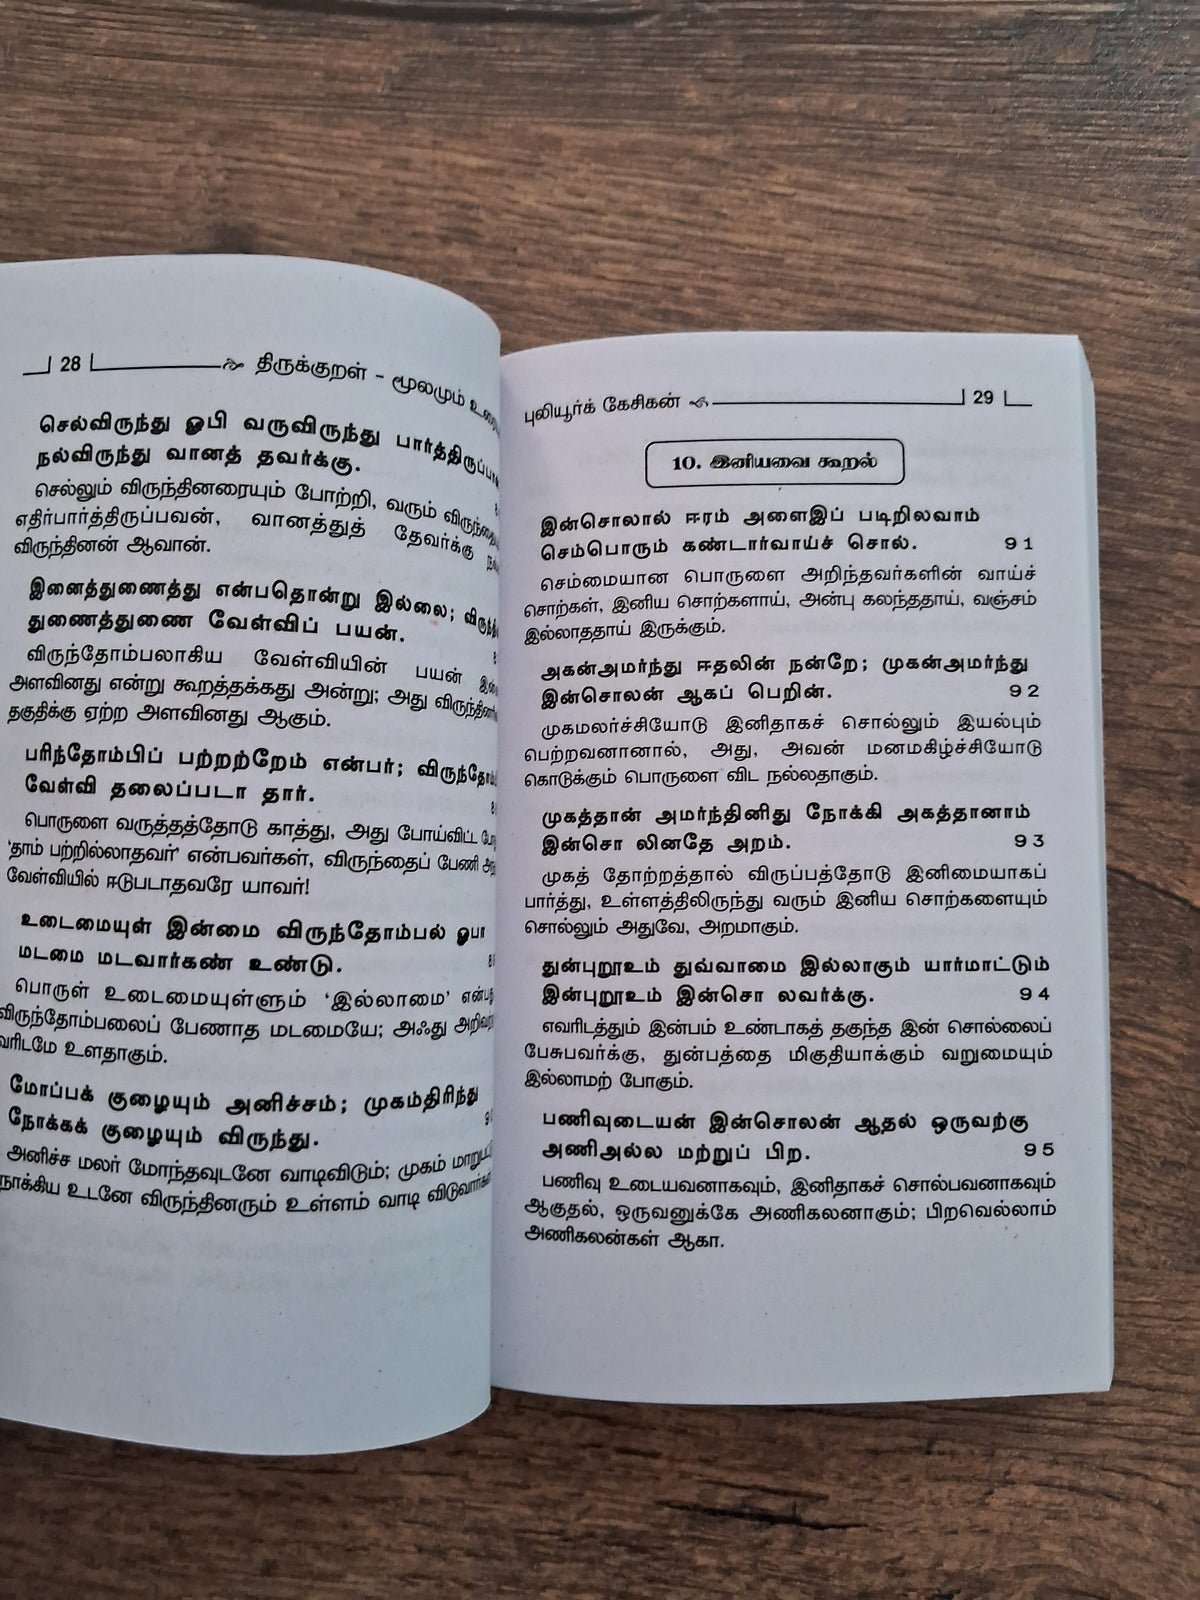 28 திருக்குறள் - மூலமும்
செல்விருந்து ஓபி வருவிருந்து
நல்விருந்து வானத் தவர்க்கு.
செல்லும் விருந்தினரையும் போற்றி, வரும்
எதிர்பார்த்திருப்பவன், வானத்துத் தேவர்க்கு
விருந்தினன் ஆவான்.
இனைத்துணைத்து என்பதொன்று இல்லை;
துணைத்துணை வேள்விப் பயன்.
விருந்தோம்பலாகிய வேள்வியின் பயன்
அளவினது என்று கூறத்தக்கது அன்று; அது
தகுதிக்கு ஏற்ற அளவினது ஆகும்.
பரிந்தோம்பிப் பற்றற்றேம் என்பர்;
வேள்வி தலைப்படா தார்.
பொருளை வருத்தத்தோடு காத்து, அது போய்விட்ட
'தாம் பற்றில்லாதவர்' என்பவர்கள், விருந்தைப் பேணி
வேள்வியில் ஈடுபடாதவரே யாவர்!
உடைமையுள் இன்மை விருந்தோம்பல் ஓபா
மடமை மடவார்கண் உண்டு.
பொருள் உடைமையுள்ளும் 'இல்லாமை'
விருந்தோம்பலைப் பேணாத மடமையே; அஃது
உளதாகும்.
மோப்பக் குழையும் அனிச்சம்; முகம்திரிந்து
நோக்கக் குழையும் விருந்து.
அனிச்ச மலர் மோந்தவுடனே வாடிவிடும்; முகம்
உடனே விருந்தினரும் உள்ளம் வாடி
புலியூர்க் கேசிகன் 29
10. இனியவை கூறல்
இன்சொலால் ஈரம் அளைஇப் படிறிலவாம்
செம்பொரும் கண்டார்வாய்ச் சொல். 91
செம்மையான பொருளை அறிந்தவர்களின் வாய்ச்
சொற்கள், இனிய சொற்களாய், அன்பு கலந்ததாய், வஞ்சம்
இல்லாததாய் இருக்கும்.
அகன்அமர்ந்து ஈதலின் நன்றே; முகன்அமர்ந்து
இன்சொலன் ஆகப் பெறின். 92
முகமலர்ச்சியோடு இனிதாகச் சொல்லும் இயல்பும்
பெற்றவனானால், அது, அவன் மனமகிழ்ச்சியோடு
கொடுக்கும் பொருளை விட நல்லதாகும்.
முகத்தான் அமர்ந்தினிது நோக்கி அகத்தானாம்
இன்சொ லினதே அறம். 93
முகத் தோற்றத்தால் விருப்பத்தோடு இனிமையாகப்
பார்த்து, உள்ளத்திலிருந்து வரும் இனிய சொற்களையும்
சொல்லும் அதுவே, அறமாகும்.
துன்புறூஉம் துவ்வாமை இல்லாகும் யார்மாட்டும்
இன்புறூஉம் இன்சொ லவர்க்கு. 94
எவரிடத்தும் இன்பம் உண்டாகத் தகுந்த இன் சொல்லைப்
பேசுபவர்க்கு, துன்பத்தை மிகுதியாக்கும் வறுமையும்
இல்லாமற் போகும்.
பணிவுடையன் இன்சொலன் ஆதல் ஒருவற்கு
அணிஅல்ல மற்றுப் பிற. 95
பணிவு உடையவனாகவும், இனிதாகச் சொல்பவனாகவும்
ஆகுதல், ஒருவனுக்கே அணிகலனாகும்; பிறவெல்லாம்
அணிகலன்கள் ஆகா.